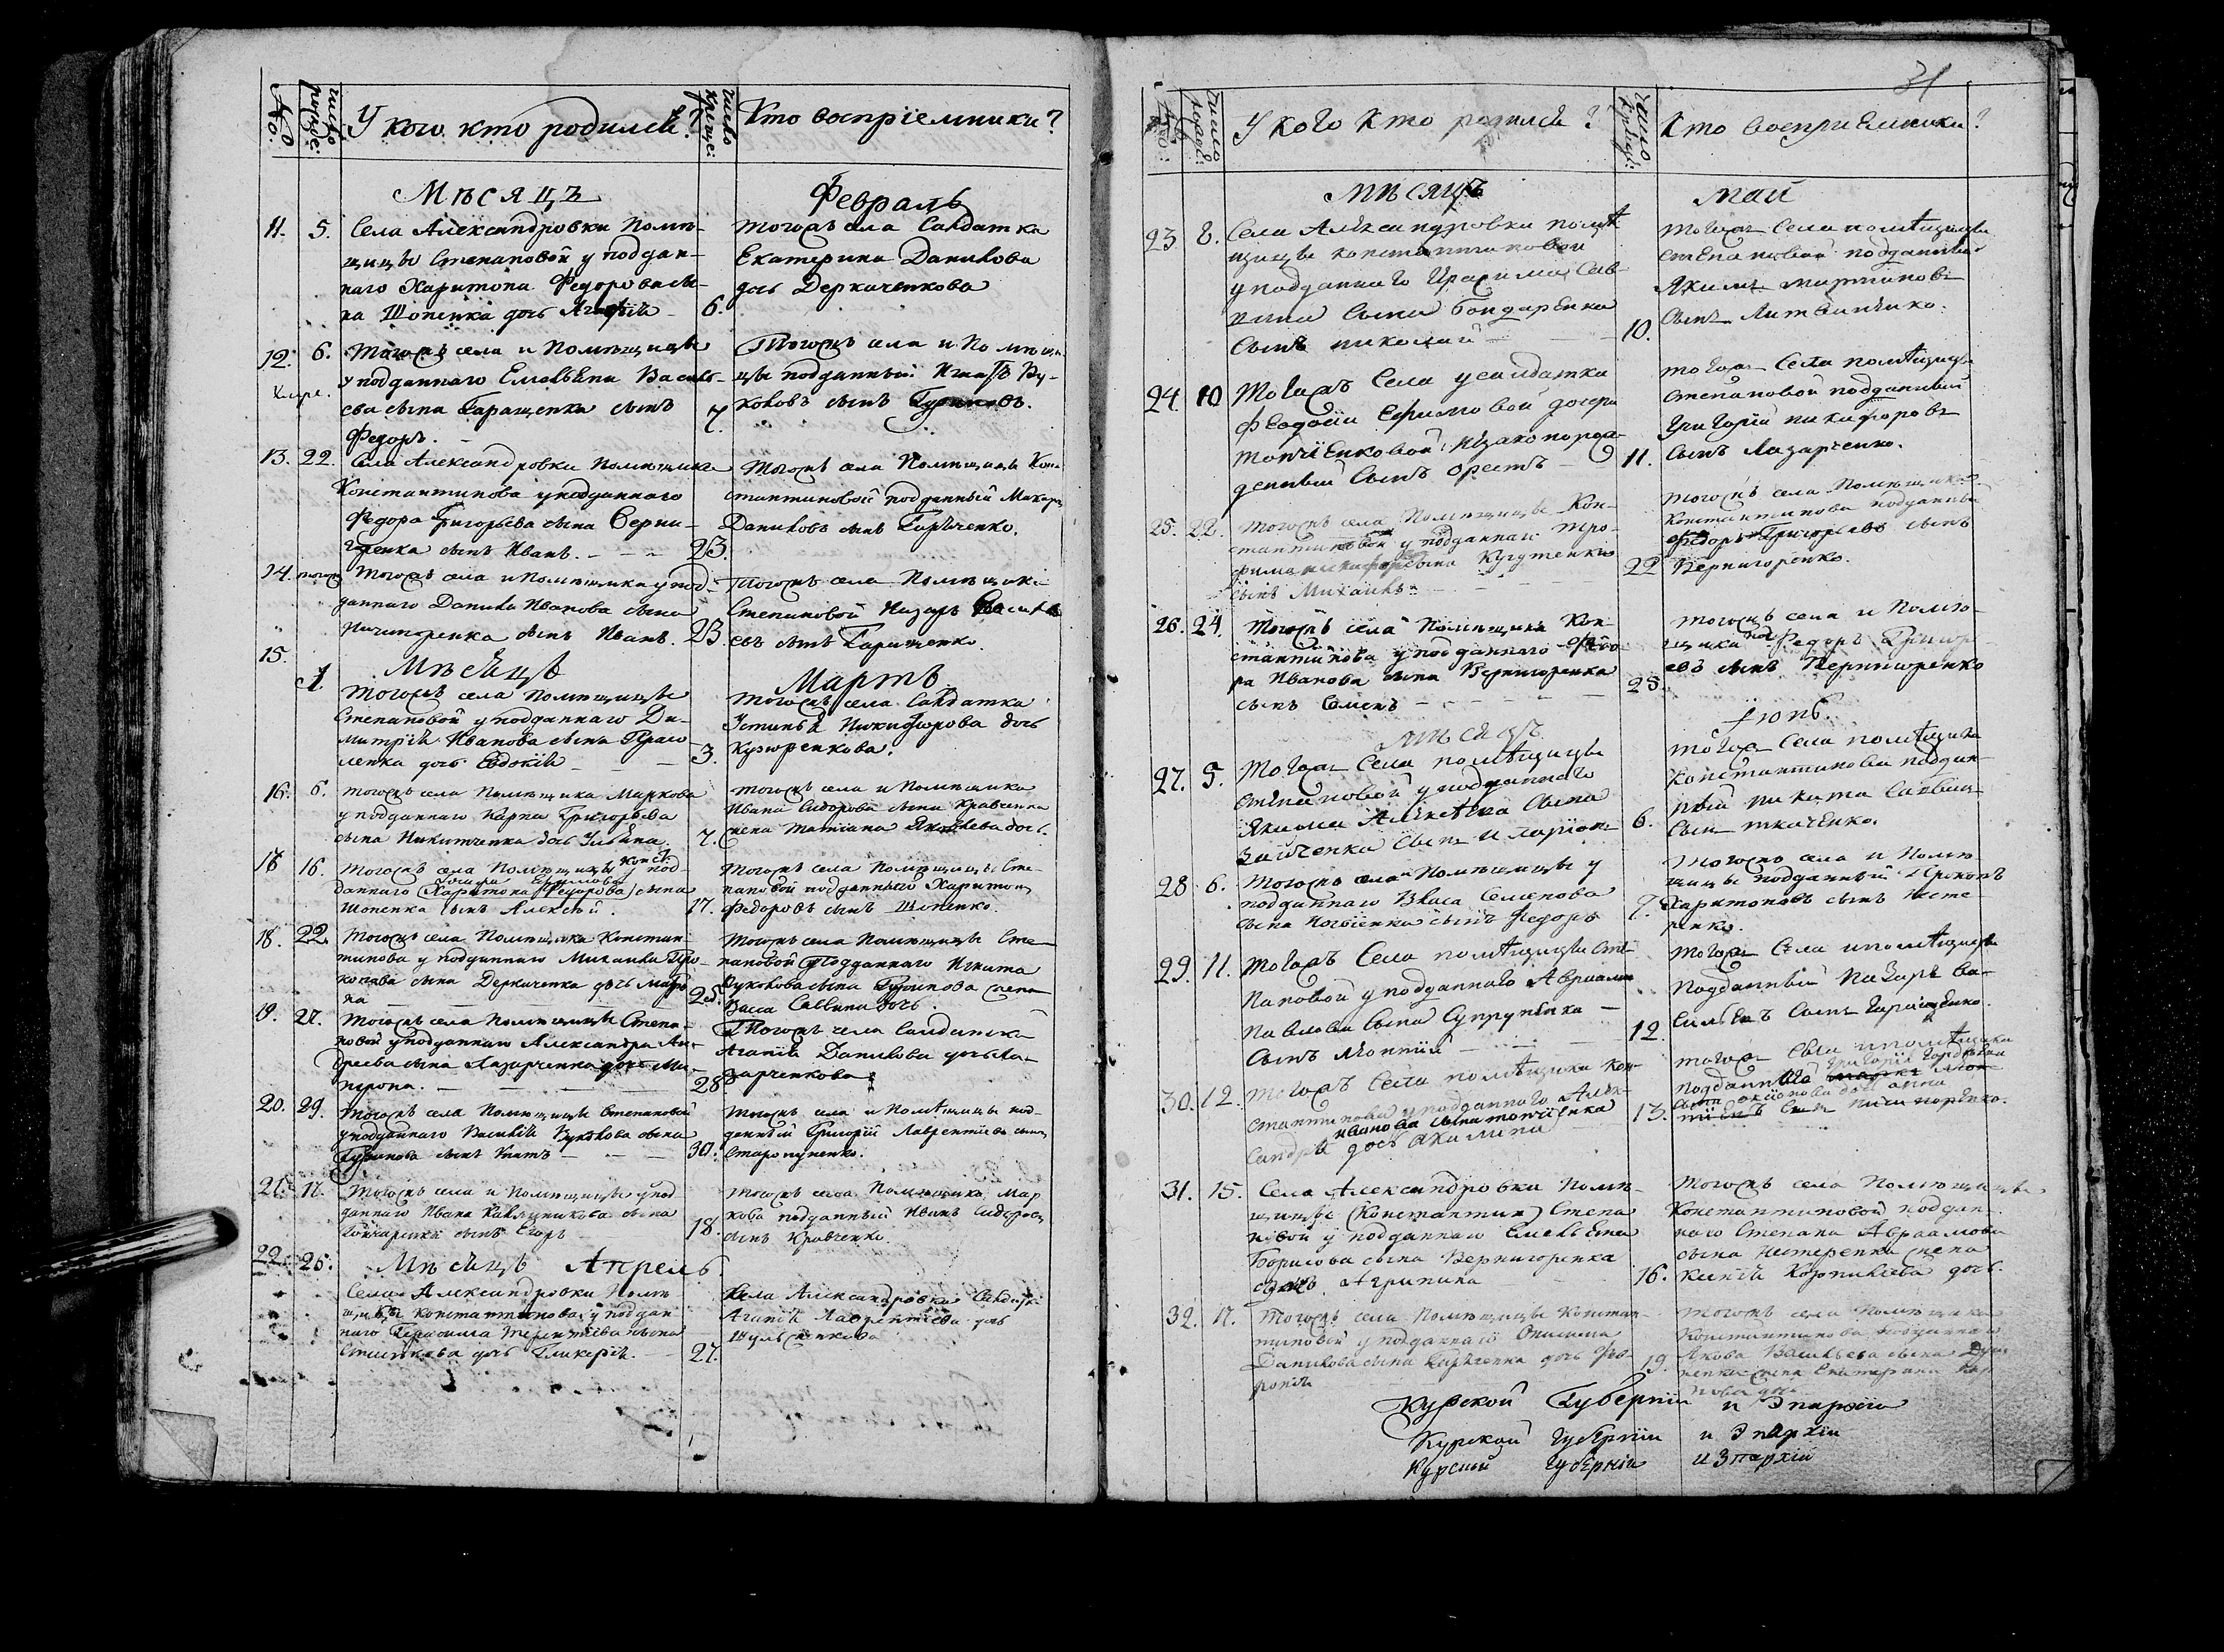 31
No. число рожде: У кого кто родился? число креще: Кто воспріемники?
Мѣсяцъ
Февраль
11. 5. Села Александровки Помѣ-
щицы Степановой у поддан-
наго Харитона Федорова сы-
на Шопенка дочь
тогожъ села Салдатка
Екатерина Данилова
дочь Деркаченкова
6.
12. 6. Тогожъ села и Помѣщицы
у подданнаго Емельяна Василь-
ева сына Гаращенка сынъ
Федоръ.
Тогожъ села и Помѣщи-
цы подданный Игнатъ Ву-
коловъ сынъ Гуриновъ.
7.
13. 22. Села Александровки Помѣщика
Константинова у подданнаго
Федора Григорьева сына Верни-
горенка сынъ Иванъ.
Тогожъ села Помѣщицы Кон-
стантиновой подданный Макаръ
Даниловъ сынъ
23.
14. тогожъ Тогожъ села и Помѣщика у под-
даннаго Данила Иванова сына
Ничипоренка сынъ Иванъ.
Тогожъ села Помѣщи
Степановой Назаръ Василь
евъ сынъ Гаращенко
23.
15.
Мѣсяцъ
Мартъ
1. Тогожъ села Помѣщицы
Степановой у подданнаго Ди-
митрія Иванова сына
ленка дочь Евдокія
Тогожъ села Салдатка
Устинья Никифорова дочь
3.
16. 6. тогожъ села Помѣщика Маркова
у подданнаго Карпа Григорьева
сына Никитченка дочь Ульяна.
тогожъ села и Помѣщика
Ивана Сидорова сына Кравченка
жена Татіана Яковлева дочь.
7.
16. Тогожъ села Помѣщицы Конст. у под-
даннаго Харитона Федорова сына
Шопенка сынъ Алексѣй.
Тогожъ села Помѣщицы Сте-
пановой подданный Харитонъ
Федоровъ сынъ Шопенко
17.
18. 22. Тогожъ села Помѣщика Констан-
тинова у подданнаго Михаила Про-
копова сына Деркаченка дочь Матро
на
Тогожъ села Помѣщицы Сте-
пановой подданнаго Никита
Вуколова сына Гуринова жена
Васса Саввина дочь
25.
19. 27. Тогожъ села Помѣщицы Степа-
новой у подданнаго Александра Ан-
дреева сына Лазарченка дочь Ма-
трона.
Тогожъ села Салдатка
Агапія Данилова дочь Ла-
зарченкова
28.
20. 29. Тогожъ села Помѣщицы Степановой
у подданнаго Василія Вуколова сына
Гуринова сынъ
Тогожъ села и Помѣщицы под-
данный Григорій Лаврентіевъ сынъ
30.
21. 17. Тогожъ села и Помѣщицы у под
даннаго Ивана сына
Гончаренка сынъ Егоръ
Тогожъ села Помѣщика Мар
кова подданный Иванъ Сидоровъ
сынъ Кравченко
18.
22. 25. Мѣсяцъ Апрель
Села Александровки Помѣ
щицы Константиновой у поддан
наго Герасима Терентіева сына
дочь Гликерія.
Села Александровки Салдатка
Агапія Лаврентіева дочь
27.
число рожд: У кого кто родился? число Креще: Кто воспріемники?
мѣсяцъ
май
23. 8. Села Александровки помѣ
щицы константиновой
у подданнаго Герасима Сав-
вина сына Бондаренка
сынъ николай
тогожъ Села помѣщицы
степановой подданный
Якимъ мартиновъ
сынъ Литвиненко.
10.
24. 10 тогожъ Села у салдатки
Феодосіи Ефимовой дочери
незаконорож-
денный сынъ Орестъ
тогожъ Села помѣщицы
степановой подданный
Григорій никифоровъ
сынъ Лазарченко.
11.
25. 22. тогожъ села Помѣщицы Кон-
стантиновой у подданнаго Тро-
фима
сынъ Михаилъ
тогожъ села Помѣщика
Константинова подданный
Федоръ Григорьевъ сынъ
Вернигоренко.
22
26. 24. Тогожъ села Помѣщика Кон-
стантинова у подданнаго Федо
ра Иванова сына Вернигоренка
сынъ Семенъ
тогожъ села и Помѣ-
щика Федоръ Григорь
евъ сынъ Вернигоренко
25.
мѣсяцъ
Іюнь.
27. 5. тогожъ села помѣщицы
степановой у подданнаго
Якима Алексѣева сына
Зайченка сынъ Иларіонъ
тогожъ Села помѣщика
константинова поддан-
ный никита Саввинъ
сынъ ткаченко.
6.
28. 6. Тогожъ села Помѣщицы у
подданнаго Власа Семенова
сына сынъ Федоръ
Тогожъ села и Помѣ-
щицы подданный Прокопъ
Харитоновъ сынъ Несте-
ренко.
7.
29. 11. тогожъ Села помѣщицы Сте-
пановой у подданнаго Авраама
Павлова сына Супруненка
сынъ
тогожъ Села и помѣщицы
подданный Назаръ Ва-
сильевъ сынъ Гаращенко.
12.
30. 12. тогожъ Села помѣщика Кон-
стантинова у подданнаго Алек-
сандра иванова сына
дочь Акилина
тогожъ Села и помѣщика
подданнаго Григорія
сынъ Ничипоренко.
13.
31. 15. Села Александровки Помѣ-
щицы (Константин) Степа
новой у подданнаго Емельяна
Борисова сына Вернигоренка
дочь Агрипина
Тогожъ села Помѣщицы
Константиновой поддан-
наго Степана Авраамова
сына Нестеренка жена
Ксенія Корниліева дочь.
16.
32. 17. Тогожъ села Помѣщицы Констан-
тиновой у подданнаго Онисима
Данилова сына дочь Фев-
ронія
Тогожъ села Помѣщика
Константинова подданнаго
Якова Васильева сына
жена Екатерина Кар
пова дочь
19.
Курской Губерніи и Эпархіи
Курской Губерніи и Эпархіи
Курской Губерніи и Эпархіи